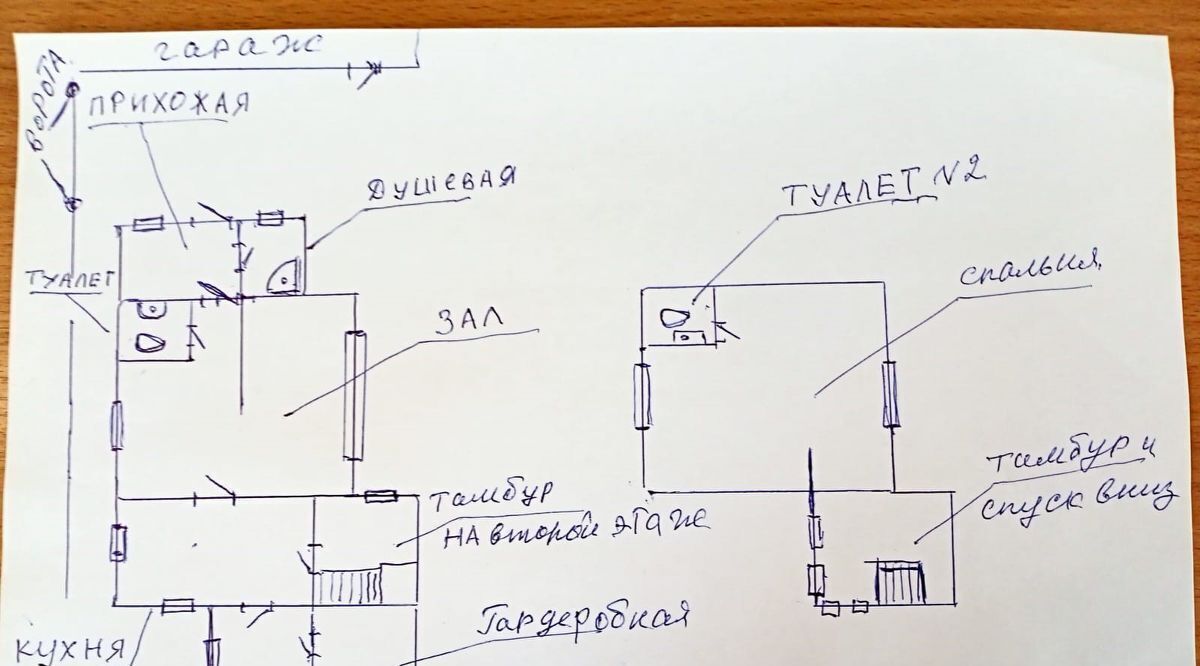 гараж
ВОРОТА
ПРИХОЖАЯ
ДУШЕВАЯ
ТУАЛЕТ
ЗАЛ
ТАМБУР
НА второй ЭТАЖ
КУХНЯ
Гардеробная
ТУАЛЕТ N2
спальня
тамбур и
спуск вниз